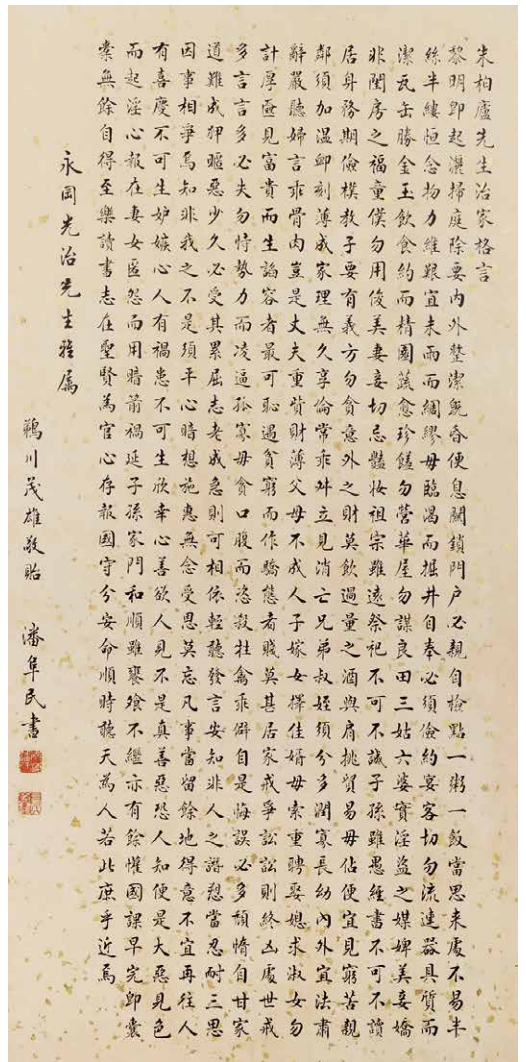 朱柏廬先生治家格言
黎明即起灑掃庭除要內外整潔既昏便息關鎖門户必親自檢點一粥一飯當思來處不易半
絲半縷恒念物力維艱宜未雨而綢繆毋臨渴而掘井自奉必須儉約宴客切勿流連器具質而
潔瓦缶勝金玉飲食約而精園蔬愈珍饈勿營華屋勿謀良田三姑六婆實淫盜之媒婢美妾嬌
非閨房之福童僕勿用俊美妻妾切忌豔妝祖宗雖遠祭祀不可不誠子孫雖愚經書不可不讀
居身務期儉樸教子要有義方勿貪意外之財莫飲過量之酒與肩挑貿易毋佔便宜見窮苦親
鄰須加溫卹刻薄成家理無久享倫常乖舛立見消亡兄弟叔姪須分多潤寡長幼內外宜法肅
辭嚴聽婦言乖骨肉豈是丈夫重貲財薄父母不成人子嫁女擇佳婿毋索重聘娶媳求淑女勿
計厚奩見富貴而生諂容者最可恥遇貧窮而作驕態者賤莫甚居家戒爭訟訟則終凶處世戒
多言言多必失勿恃勢力而凌逼孤寡毋貪口腹而恣殺牲禽乖僻自是悔誤必多頹惰自甘家
道難成狎暱惡少久必受其累屈志老成急則可相依輕聽發言安知非人之譖愬當忍耐三思
因事相爭焉知非我之不是須平心暗想施惠無念受恩莫忘凡事當留餘地得意不宜再往人
有喜慶不可生妒嫉心人有禍患不可生欣幸心善欲人見不是真善惡恐人知便是大惡見色
而起淫心報在妻女匿怨而用暗箭禍延子孫家門和順雖饔飧不繼亦有餘懽國課早完即囊
橐無餘自得至樂讀書志在聖賢為官心存報國守分安命順時聽天為人若此庶乎近焉
永岡光治先生雅屬
鵜川茂雄敬貽 潘阜民書